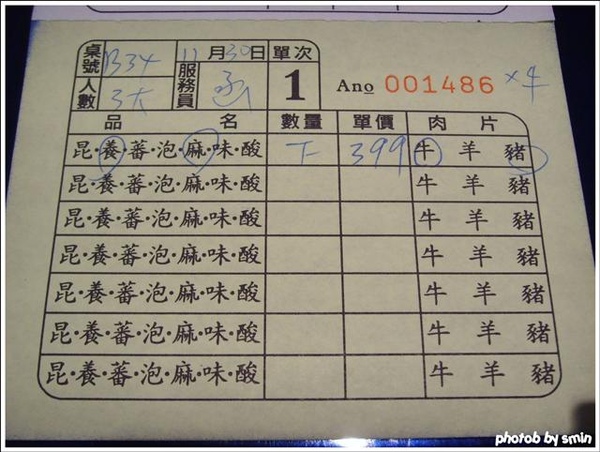 桌號 B34 11月30日 單次
人數 3大 服務員 1 Ano 001486 ×牛
品名 數量 單價 肉片
昆·養·蕃·泡·麻·味·酸 下 399 牛 羊 豬
昆·養·蕃·泡·麻·味·酸 牛 羊 豬
昆·養·蕃·泡·麻·味·酸 牛 羊 豬
昆·養·蕃·泡·麻·味·酸 牛 羊 豬
昆·養·蕃·泡·麻·味·酸 牛 羊 豬
昆·養·蕃·泡·麻·味·酸 牛 羊 豬
昆·養·蕃·泡·麻·味·酸 牛 羊 豬
photob by smin